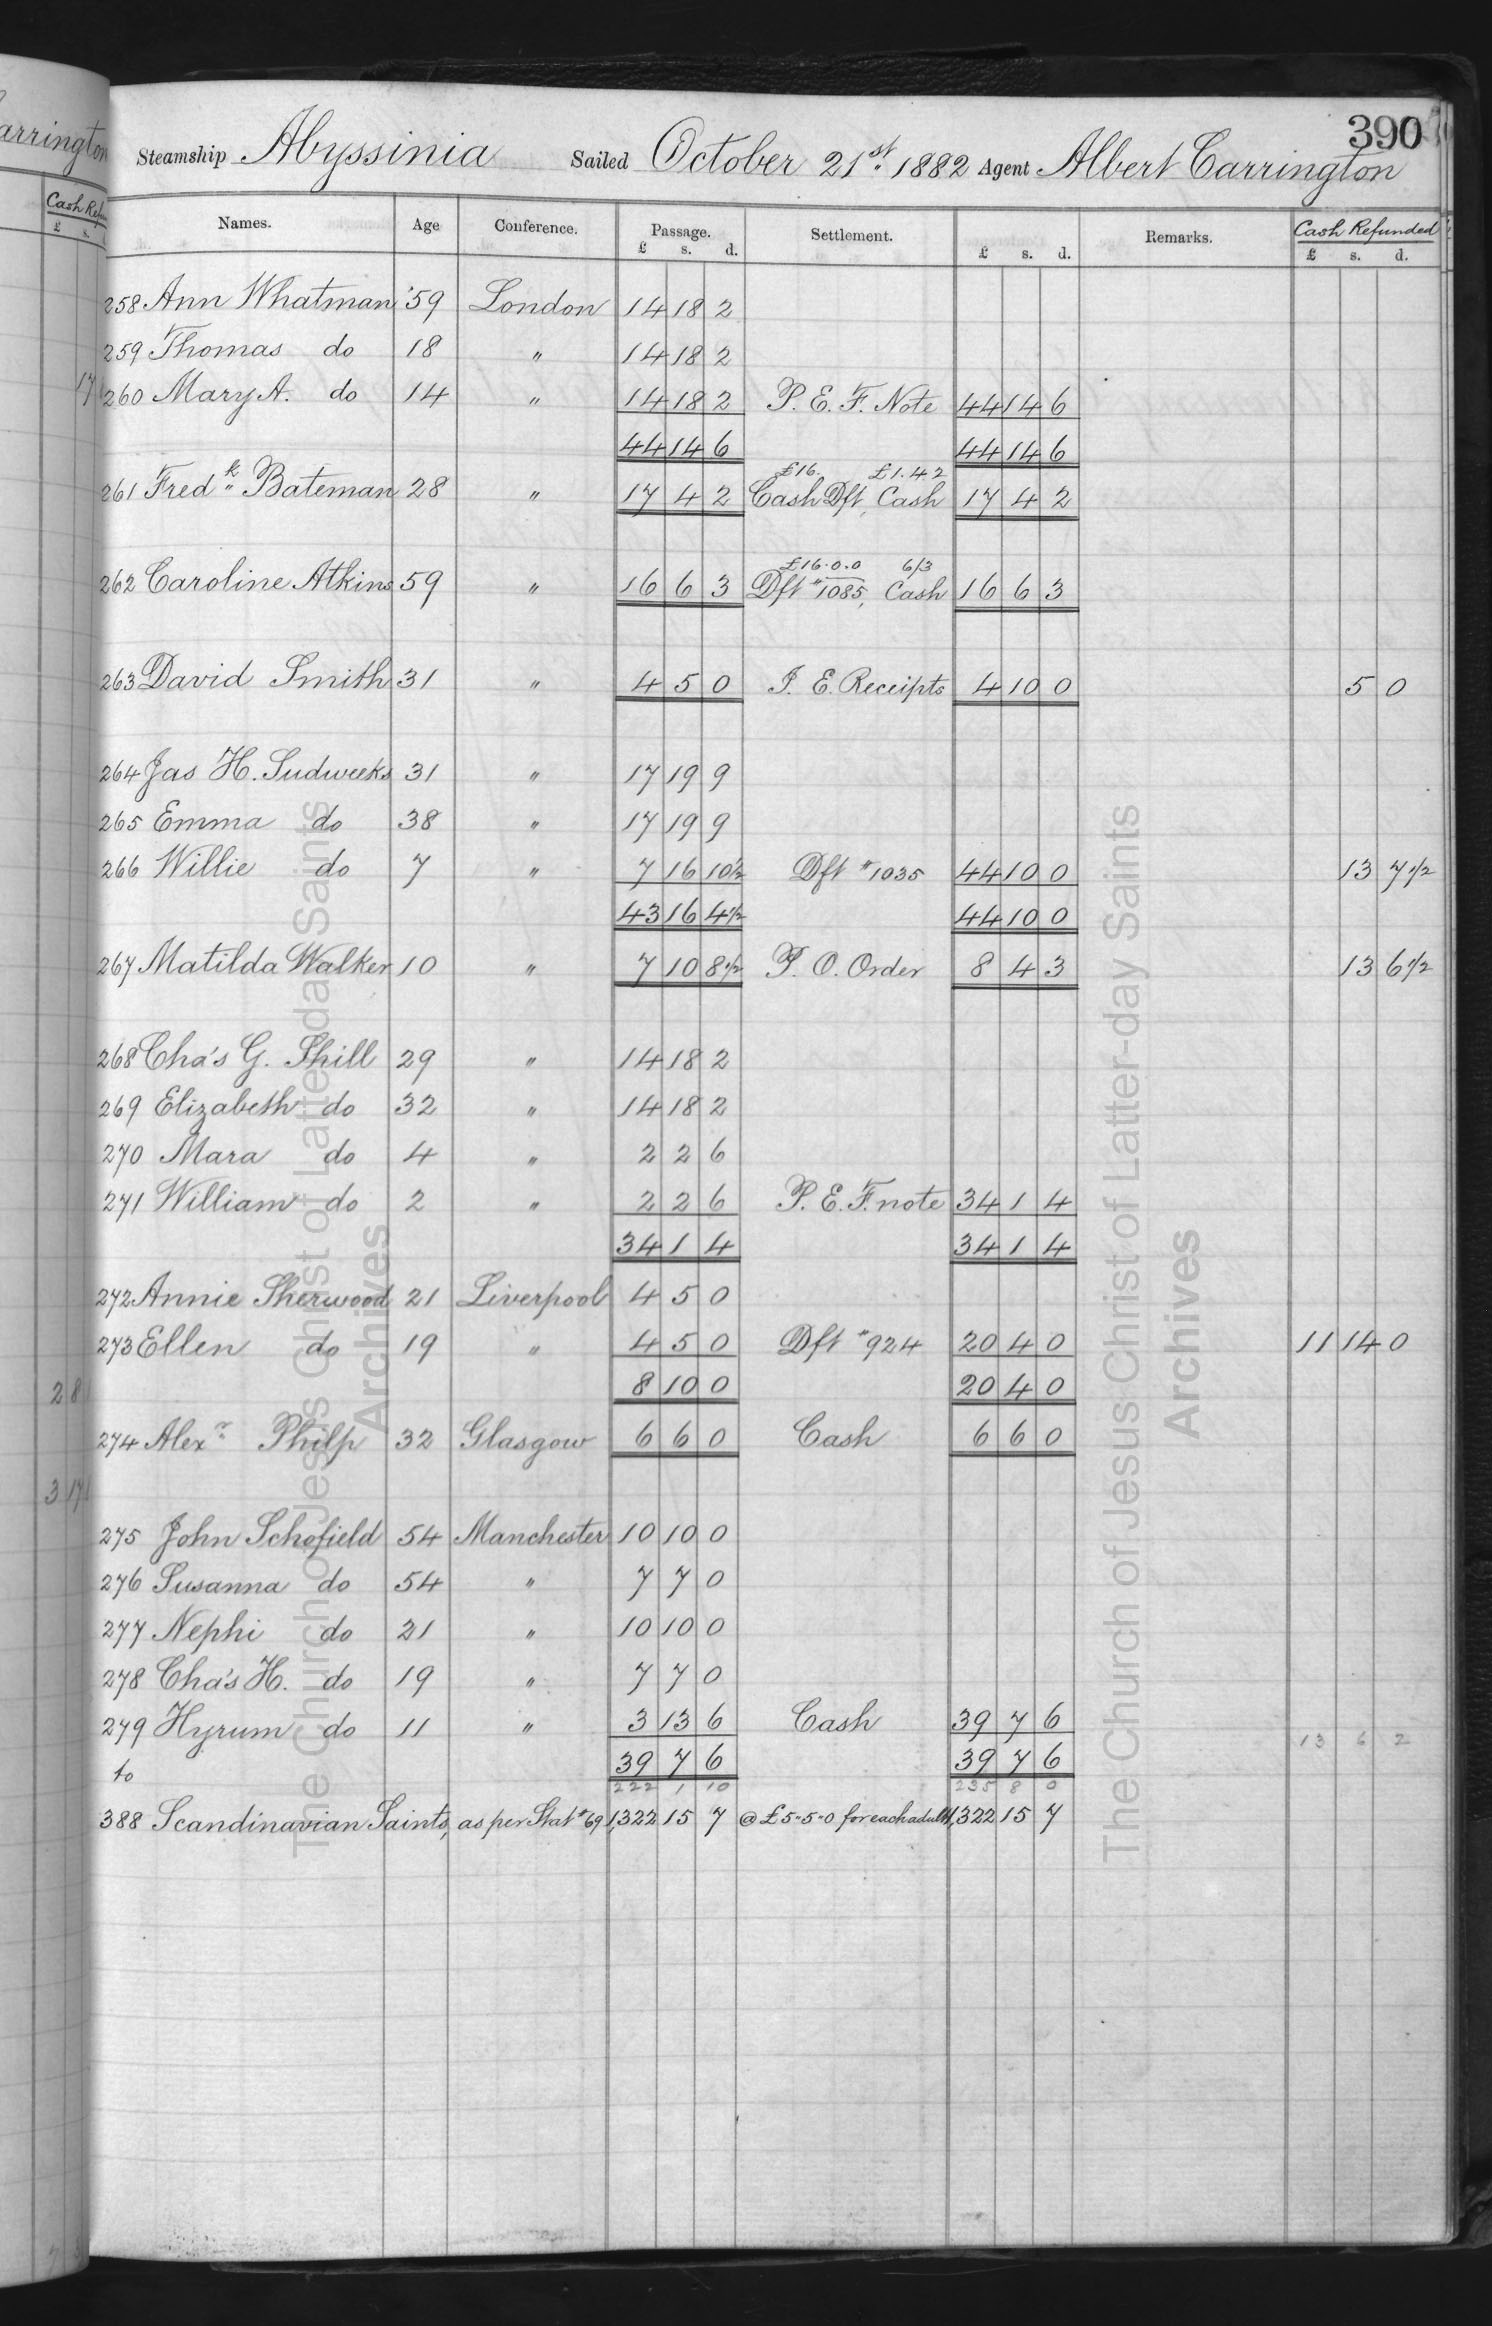 390
Steamship Abyssinia Sailed October 21st. 1882 Agent Albert Carrington
Names. Age Conference. Passage. Settlement. Remarks. Cash Refunded
£ s. d. £ s. d. £ s. d.
258 Ann Whatman 59 London 14 18 2
259 Thomas do 18 " 14 18 2
260 Mary A. do 14 " 14 18 2 P. E. F. Note 44 14 6
44 14 6 44 14 6
£16. £1.4.2
261 Fredk. Bateman 28 " 17 4 2 Cash Dft, Cash 17 4 2
£16.0.0 6/3
262 Caroline Atkins 59 " 16 6 3 Dft #1085, Cash 16 6 3
263 David Smith 31 " 4 5 0 I. E. Receipts 4 10 0 5 0
264 Jas H. Sudweeks 31 " 17 19 9
265 Emma do 38 " 17 19 9
266 Willie do 7 " 7 16 10½ Dft #1035 44 10 0 13 7½
43 16 4½ 44 10 0
267 Matilda Walker 10 " 7 10 8½ P. O. Order 8 4 3 13 6½
268 Cha's G. Shill 29 " 14 18 2
269 Elizabeth do 32 " 14 18 2
270 Mara do 4 " 2 2 6
271 William do 2 " 2 2 6 P. E. F. note 34 1 4
34 1 4 34 1 4
272 Annie Sherwood 21 Liverpool 4 5 0
273 Ellen do 19 " 4 5 0 Dft #924 20 4 0 11 14 0
8 10 0 20 4 0
274 Alexr Philp 32 Glasgow 6 6 0 Cash 6 6 0
275 John Schofield 54 Manchester 10 10 0
276 Susanna do 54 " 7 7 0
277 Nephi do 21 " 10 10 0
278 Cha's H. do 19 " 7 7 0
279 Hyrum do 11 " 3 13 6 Cash 39 7 6
39 7 6 39 7 6 13 6 2
to 222 1 10 235 8 0
388 Scandinavian Saints, as per Stat #69 1,322 15 7 @ £5-5-0 for each adult 1,322 15 7
The Church of Jesus Christ of Latter-day Saints
Archives
The Church of Jesus Christ of Latter-day Saints
Archives
arrington
Cash Refu
£ s.
17
2 8
3 17